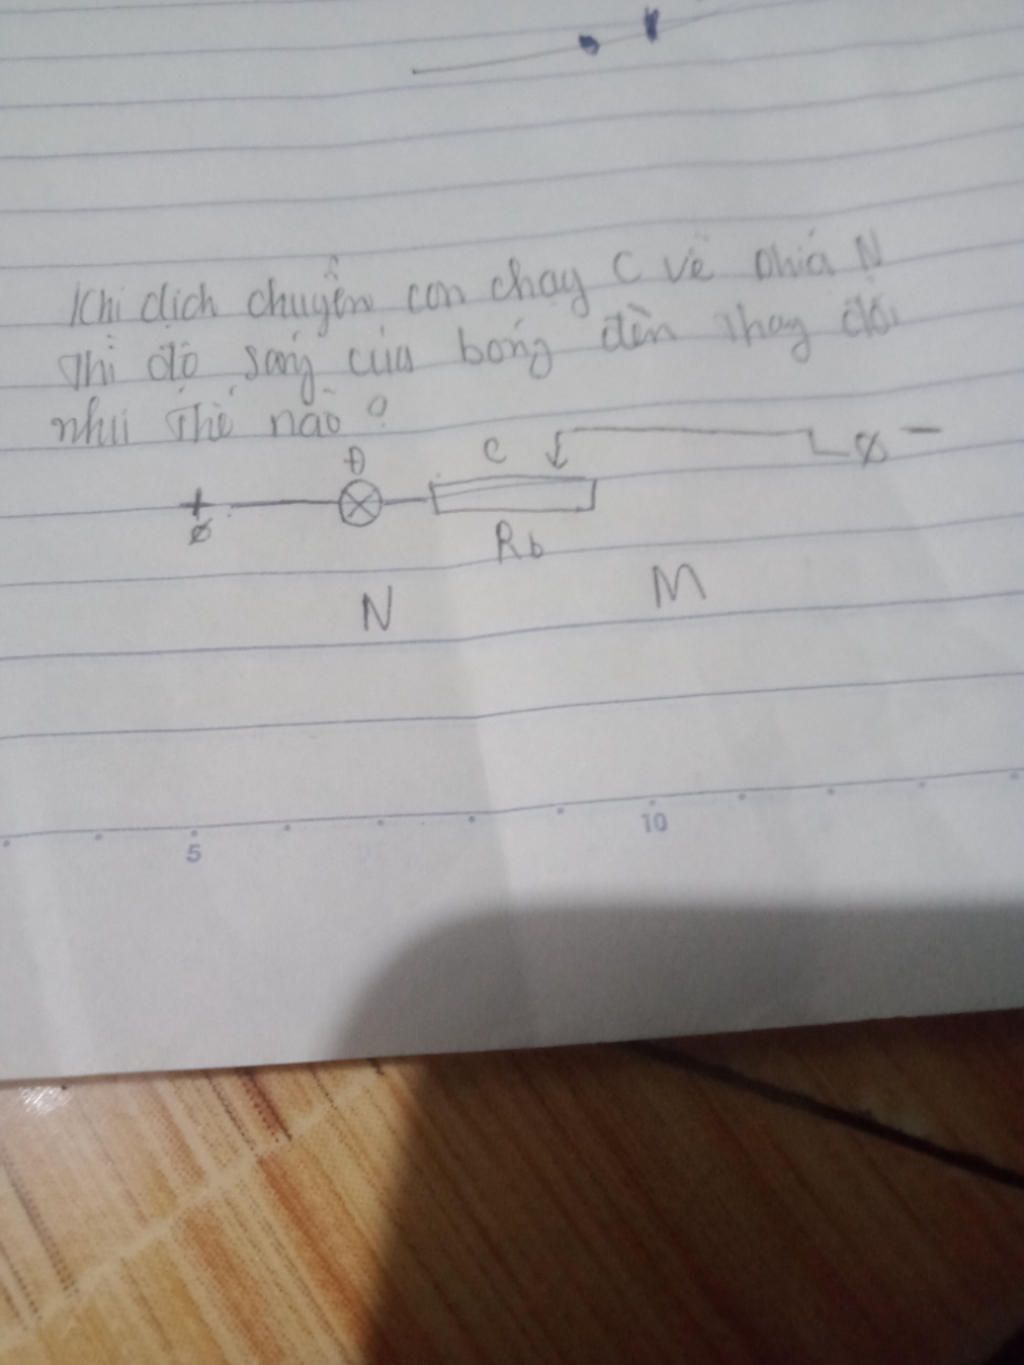 Khi dịch chuyển con chạy C về phía N
thì độ sáng của bóng đèn thay đổi
như thế nào?
Đ C -
+
Rb
N M
5 10